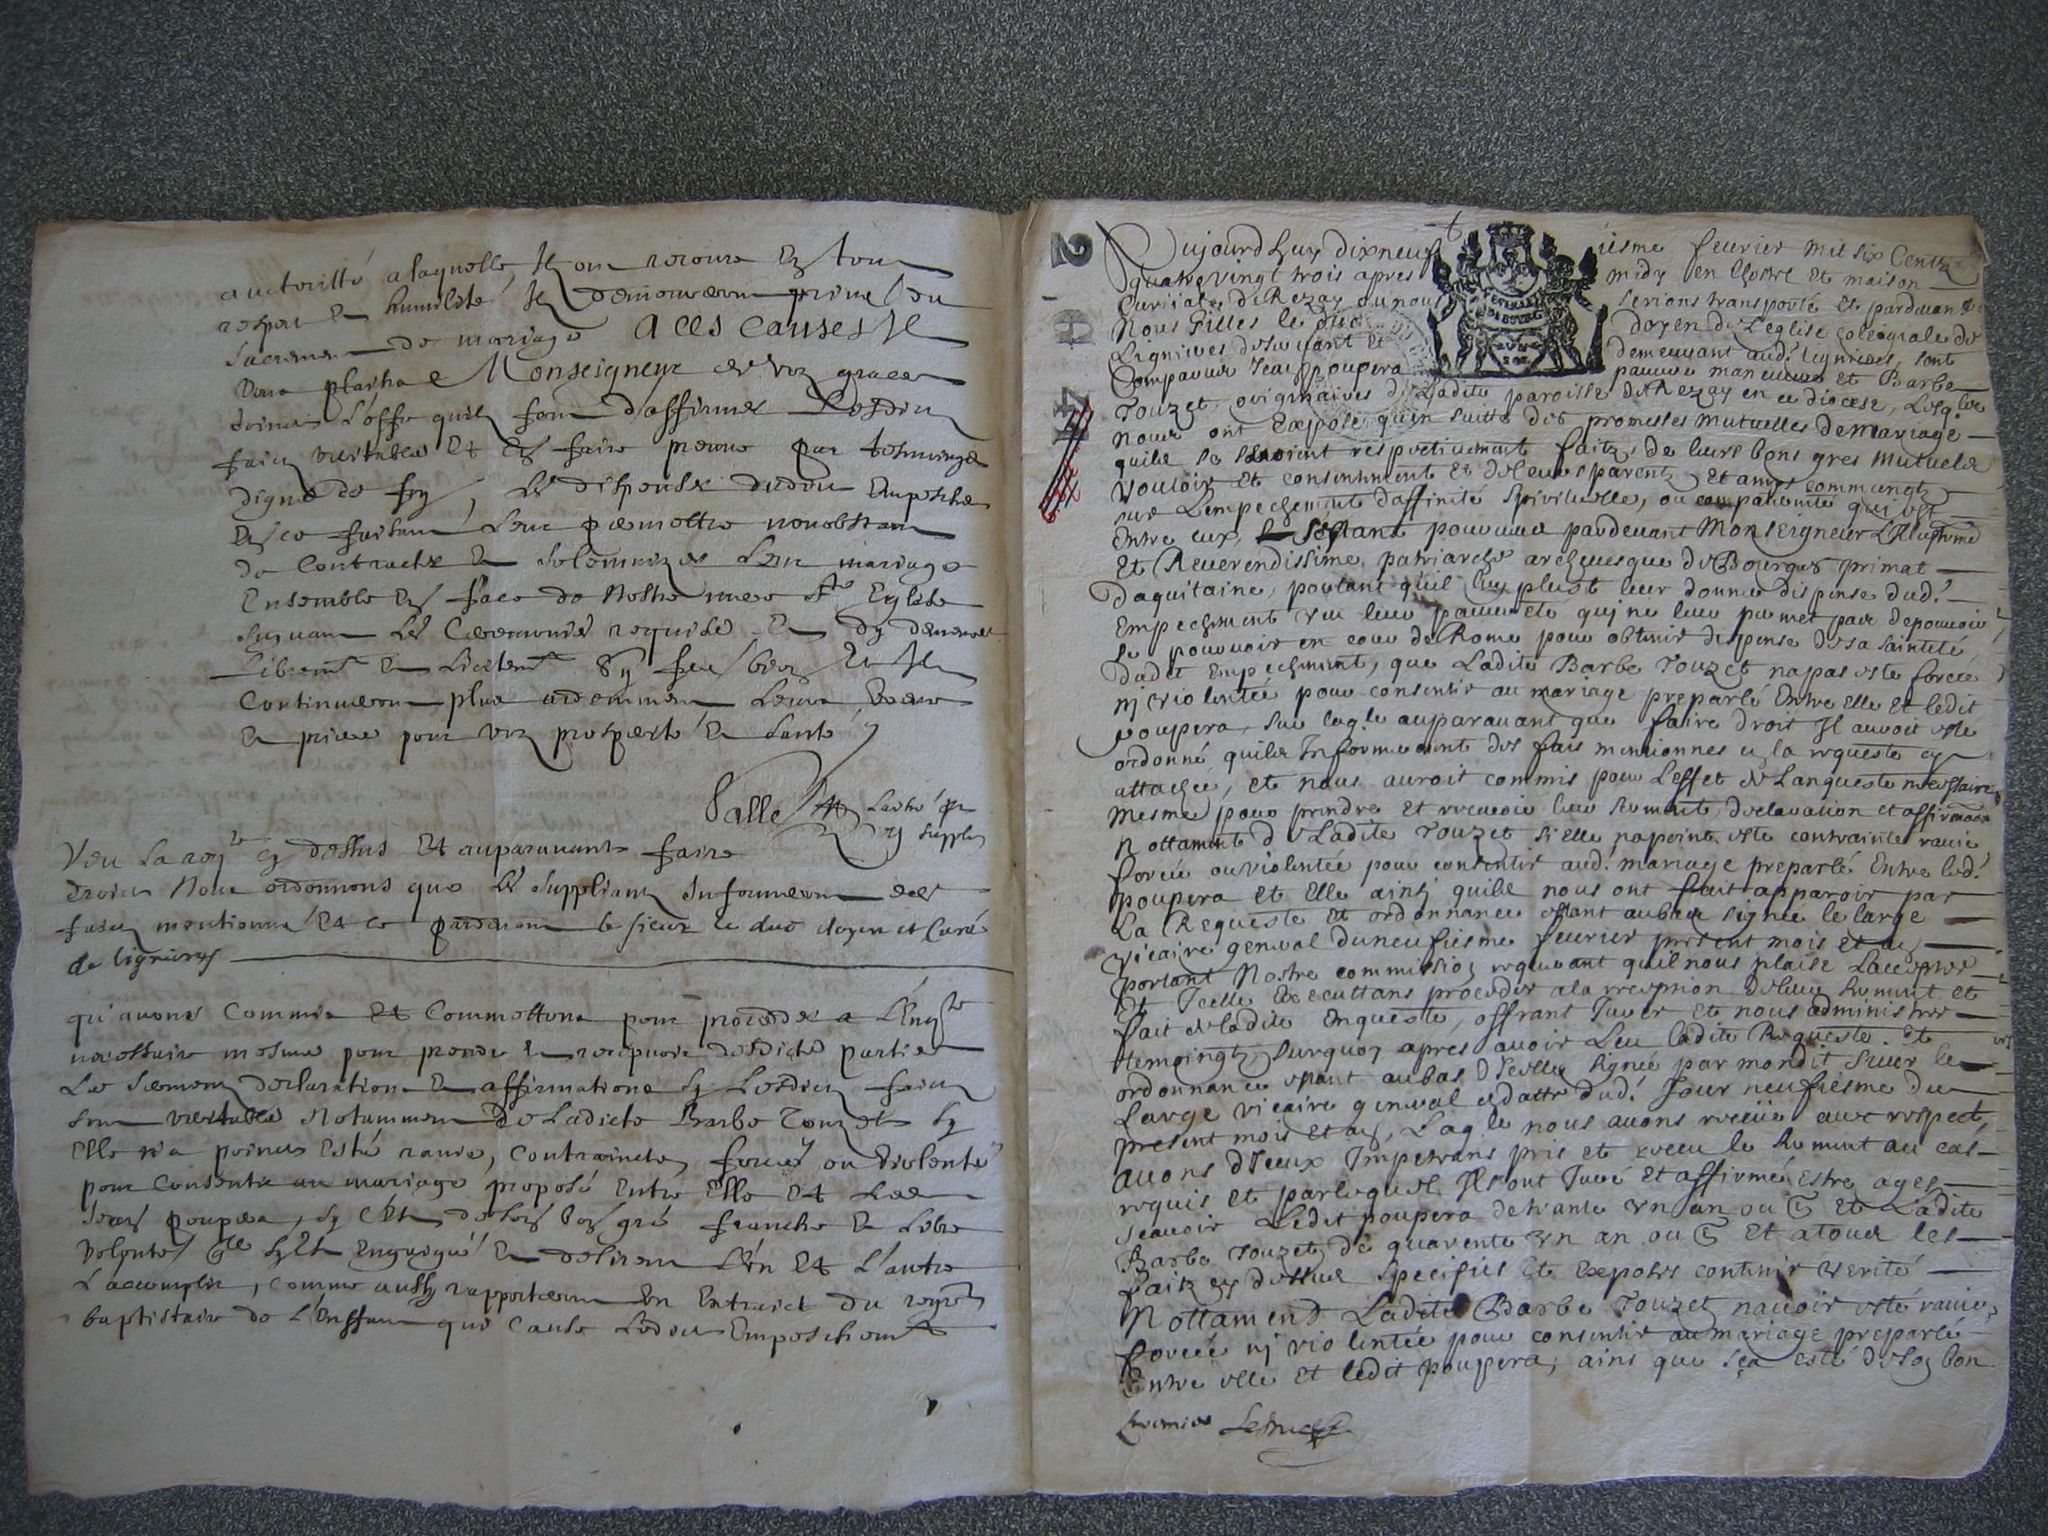 auctoritté a laquelle, Ilz ont recours En tout
respect Et humilité Ilz demeureront privés du
Sacrement de mariage A CES CAUSES Il
vous plaise Monseigneur de voz graces
donner L'offre quilz font d'affirmer Lesdits
faits veritables Et En faire preuve par tesmoings
digne de foy, Les dispenser dudit Empesche
En ce faisant, Leur permettre nonobstant
de Contracter Et Solemnizer Leur mariage
Ensemble En face de Nostre mere Ste Eglise
Suyvant Les Ceremonies requises Et dy demeurer
Librement Et Licitement Sy feres bien Et Ilz
Continueront plus ardemment Leurs vœux
Et prieres pour voz prosperité Et Santé
Salle
Suppls
Veu La req.te cy dessus Et auparavant faire
droict Nous ordonnons que Les Suppliants Informeront des
faits mentionnés Et ce pardevant le sieur le duc doyen et Curé
de lignieres
qu'avons Commis Et Commettons pour proceder a L'Enq.te
necessaire mesme pour prendre Et recepvoir desdictes parties
Le Serment declaration Et affirmations Sy Lesdits faits
Sont veritables Notamment De Ladicte Barbe Touzet Sy
Elle n'a poinct Esté ravie, Contraincte, forcée ou Violentée
pour Consentir au mariage proposé Entre Elle Et Led.
Jean poupera, Sy C'Est de Son bon gré franche Et Libre
Volonté qlle Sy Est Engaigée Et desirent L'un Et L'autre
L'accomplir, Comme aussy rapporteront Un Extraict du regre
baptistaire de L'Enffant que Cause Ledit Empeschemt
2
Aujourdhuy dixneufiesme feuvrier mil six Centz
quatre vingt trois apres midy en Lhostel et maison
Curiiale de Rezay ou nous serions transporté Et pardevant
Nous Gilles le duc doyen de L'eglise colegiale de
Lignieres desservant Et demeurant aud. Lignieres, sont
Comparus Jean poupera pauvre maneuvre et Barbe
Touzet, originaires de Ladite paroisse de Rezay en ce diocese, Lesqlz
nous ont Exposé quen suitte des promesses mutuelles de mariage
quilz se seroient respectivement faitz, de leurs bons gres mutuels
vouloir Et consentement Et de leurs parentz Et amys communs
sur L'empechement daffinité spirituelle, ou compaternité qui est
Entre eux, Sestant pourveus pardevant Monseigneur L'Illustrime
Et Reverendissime, patriarche archevesque de Bourges primat
daquitaine, portant quil luy plust leur donner dispense dud.
Empechement veu leur pauvreté qui ne leur permet pas de pouvoir
se pourvoir en cour de Rome pour obtenir dispense de sa sainteté
dudit Empechement, que Ladite Barbe Touzet na pas esté forcée
ny violentée pour consentir au mariage preparlé Entre elle Et ledit
poupera, sur laqle auparavant que faire droit Il auroit esté
ordonné quilz Informeroient des fais mentionnes en la requeste cy
attachée, Et nous auroit commis pour L'effet de Lanqueste necessaire
Mesme pour prendre Et recevoir leur serment, declaration et affirmation
Nottamente de Ladite Touzet si Elle na point esté contrainte ravie
forcée ou violentée pour consentir aud. mariage preparlé Entre led.
poupera Et Elle ainsy quilz nous ont fait apparoir par
La Requeste Et ordonnance estant au bas signée le large
vicaire general du neufiesme feuvrier present mois Et an
portant Nostre commission requerant quil nous plaise L'accepter
Et Icelle Executtans proceder a la reception de leur serment Et
fait de ladite Enqueste, offrant Jurer Et nous administrer
temoingtz, surquoy apres avoir Leu ladite Requeste Et
ordonnance estant au bas d'Icelle signée par mondit sieur le
Large vicaire general en datte dud. Jour neufiesme du
present mois Et an, Laqle nous avons receüe avec respect,
avons d'Iceux Impetrans pris et receu le serment au cas
requis Et par lequel Ils ont Juré Et affirmé Estre ages
scavoir Ledit poupera de trante un an ou  Et Ladite
Barbe Touzet de quarente un an ou  Et a tous les
faitz cy dessus specifies Et Exposes contenir verité
Nottament Ladite Barbe Touzet navoir esté ravie,
forcée ny violentée pour consentir au mariage preparlé
Entre elle Et ledit poupera, ains que sça esté de son bon
Leduc